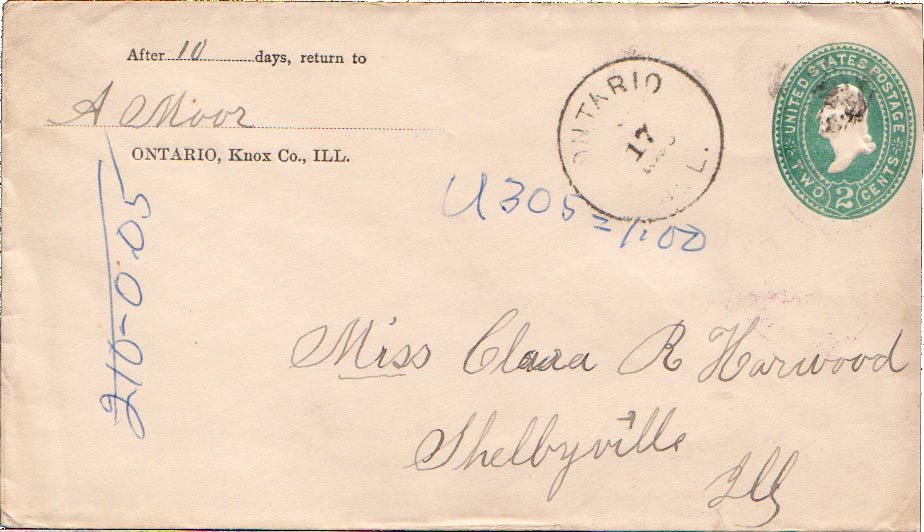 After 10 days, return to
A Moor
ONTARIO, Knox Co., ILL.
ONTARIO
17
ILL.
UNITED STATES POSTAGE
TWO 2 CENTS
U305 = 1.00
210-0.05
Miss Clara R Harwood
Shelbyville
Ill